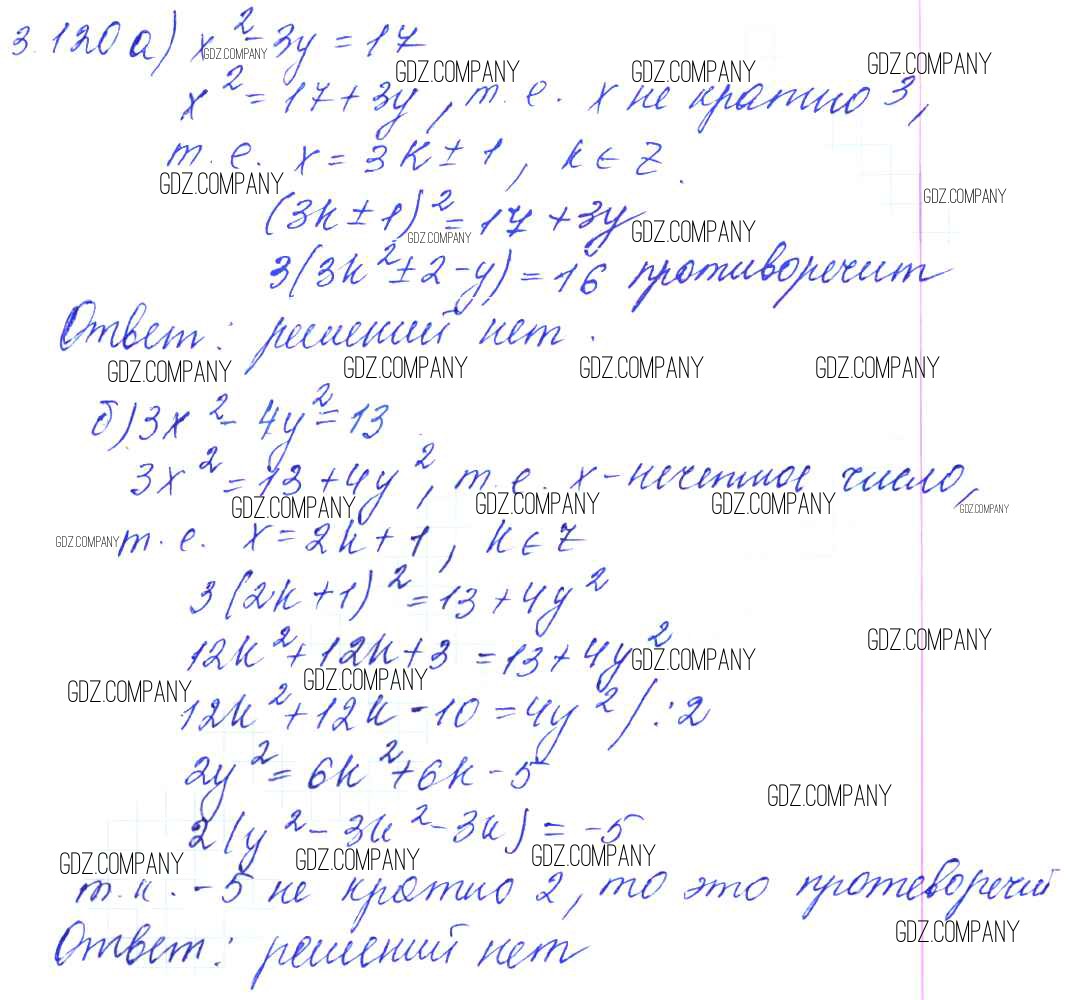 3.120 а) x² - 3y = 17
GDZ.COMPANY
GDZ.COMPANY GDZ.COMPANY GDZ.COMPANY
x² = 17 + 3y, т. е. x не кратно 3,
т. е. x = 3k ± 1, k ∈ Z.
GDZ.COMPANY GDZ.COMPANY
(3k ± 1)² = 17 + 3y
GDZ.COMPANY GDZ.COMPANY
3(3k² ± 2 - y) = 16 противоречит
Ответ: решений нет.
GDZ.COMPANY GDZ.COMPANY GDZ.COMPANY GDZ.COMPANY
б) 3x² - 4y² = 13
3x² = 13 + 4y², т. е. x - нечетное число,
GDZ.COMPANY GDZ.COMPANY GDZ.COMPANY GDZ.COMPANY
GDZ.COMPANY т. е. x = 2k + 1, k ∈ Z
3(2k + 1)² = 13 + 4y²
12k² + 12k + 3 = 13 + 4y²
GDZ.COMPANY GDZ.COMPANY
GDZ.COMPANY GDZ.COMPANY
12k² + 12k - 10 = 4y² ) : 2
2y² = 6k² + 6k - 5
GDZ.COMPANY
2(y² - 3k² - 3k) = -5
GDZ.COMPANY GDZ.COMPANY GDZ.COMPANY
т. к. -5 не кратно 2, то это протеворечий
GDZ.COMPANY
Ответ: решений нет